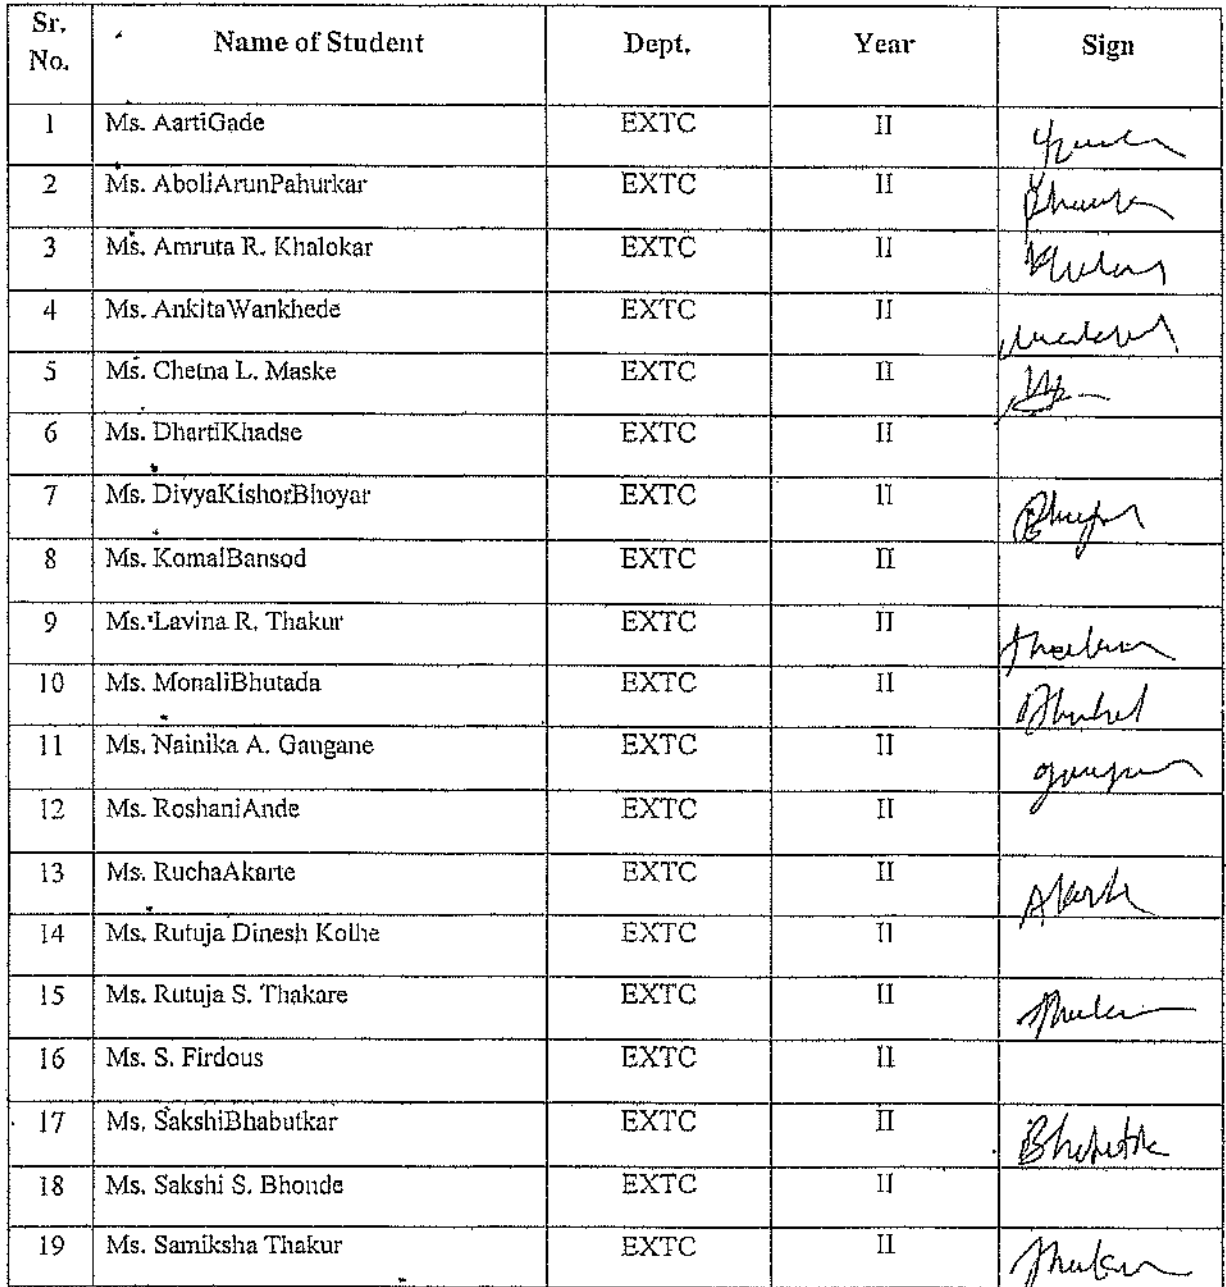 Sr. No. Name of Student Dept. Year Sign
1 Ms. AartiGade EXTC II
2 Ms. AboliArunPahurkar EXTC II
3 Ms. Amruta R. Khalokar EXTC II
4 Ms. AnkitaWankhede EXTC II
5 Ms. Chetna L. Maske EXTC II
6 Ms. DhartiKhadse EXTC II
7 Ms. DivyaKishorBhoyar EXTC II
8 Ms. KomalBansod EXTC II
9 Ms. Lavina R. Thakur EXTC II
10 Ms. MonaliBhutada EXTC II
11 Ms. Nainika A. Gangane EXTC II
12 Ms. RoshaniAnde EXTC II
13 Ms. RuchaAkarte EXTC II
14 Ms. Rutuja Dinesh Kolhe EXTC II
15 Ms. Rutuja S. Thakare EXTC II
16 Ms. S. Firdous EXTC II
17 Ms. SakshiBhabutkar EXTC II
18 Ms. Sakshi S. Bhonde EXTC II
19 Ms. Samiksha Thakur EXTC II